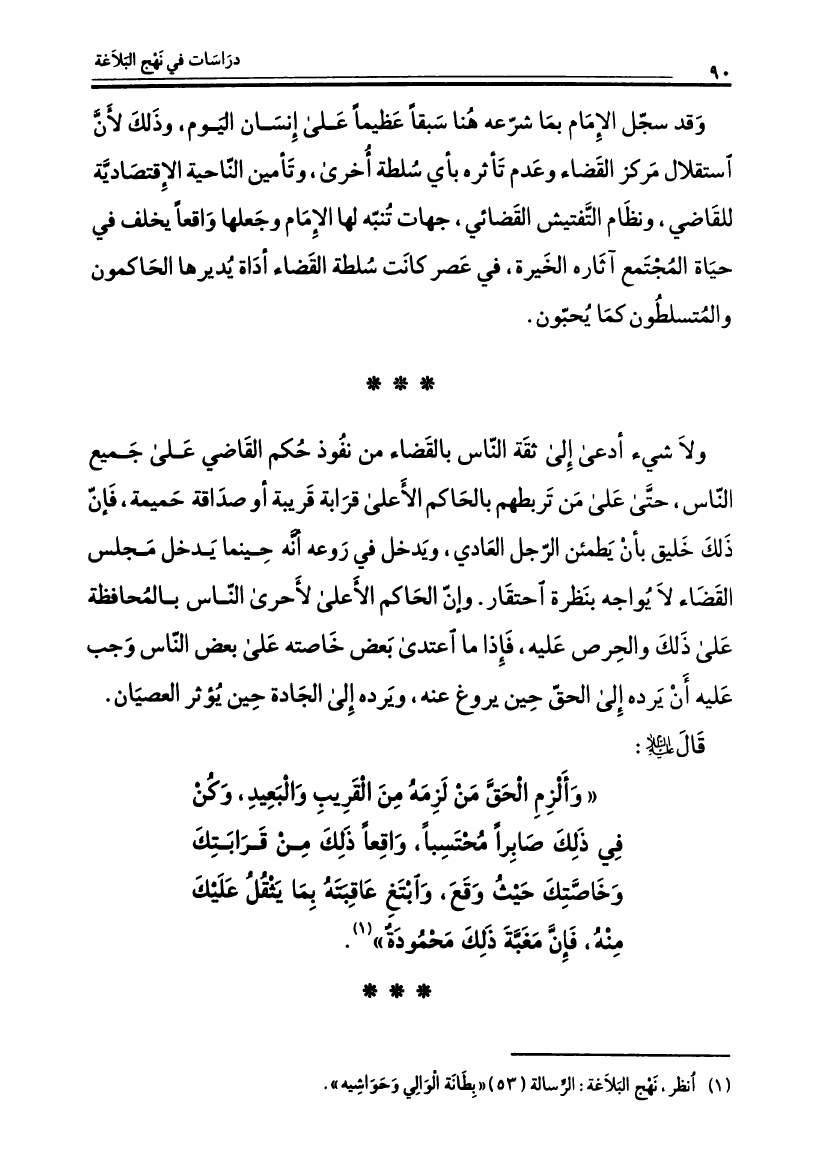 ٩٠ درَاسَات في نَهْج البَلاَغة
وَقد سجّل الإِمَام بمَا شرّعه هُنا سَبقاً عَظيماً عَـلىٰ إِنسَـان اليَـوم، وذَلكَ لأَنَّ
ٱستقلال مَركز القَضاء وعَدم تَأثره بأي سُلطة أُخرىٰ، وتَأمين النّاحية الإِقتصَاديَّة
للقَاضي، ونظَام التَّفتيش القَضائي، جهات تُنبّه لها الإِمَام وجَعلها وَاقعاً يخلف في
حيَاة المُجْتَمع آثَاره الخَيرة، في عَصر كانَت سُلطة القَضاء أدَاة يُديرها الحَاكمون
والمُتسلطُون كمَا يُحبّون.
* * *
ولاَ شيء أدعىٰ إِلىٰ ثقَة النّاس بالقَضاء من نفُوذ حُكم القَاضي عَـلىٰ جَـميع
النّاس، حتَّىٰ عَلىٰ مَن تَربطهم بالحَاكم الأَعلىٰ قرَابة قَريبة أو صدَاقة حَميمة، فَإِنّ
ذَلكَ خَليق بأنْ يَطمئن الرّجل العَادي، ويَدخل في رَوعه أنَّه حِـينما يَـدخل مَـجلس
القَضَاء لاَ يُواجه بنَظرة ٱحتقَار. وإِنّ الحَاكم الأَعلىٰ لأَحرىٰ النّـاس بـالمُحافظة
عَلىٰ ذَلكَ والحِرص عَليه، فَإِذا ما ٱعتدىٰ بَعض خَاصته عَلىٰ بعض النّاس وَجب
عَليه أَنْ يَرده إِلىٰ الحَقّ حِين يروغ عنه، ويَرده إِلىٰ الجَادة حِين يُؤثر العصيَان.
قَالَ عليه السلام :
« وَأَلْزِمِ الْحَقَّ مَنْ لَزِمَهُ مِنَ الْقَرِيبِ وَالْبَعِيدِ، وَكُنْ
فِي ذَلِكَ صَابِراً مُحْتَسِباً، وَاقِعاً ذَلِكَ مِـنْ قَـرَابَـتِكَ
وَخَاصَّتِكَ حَيْثُ وَقَعَ، وَٱبْتَغِ عَاقِبَتَهُ بِمَا يَثْقُلُ عَلَيْكَ
مِنْهُ، فَإِنَّ مَغَبَّةَ ذَلِكَ مَحْمُودَةٌ»(١).
* * *
(١) اُنظر، نَهْج البَلاَغة: الرِّسالة (٥٣) «بِطَانَة الْوَالِي وَحَوَاشِيه».